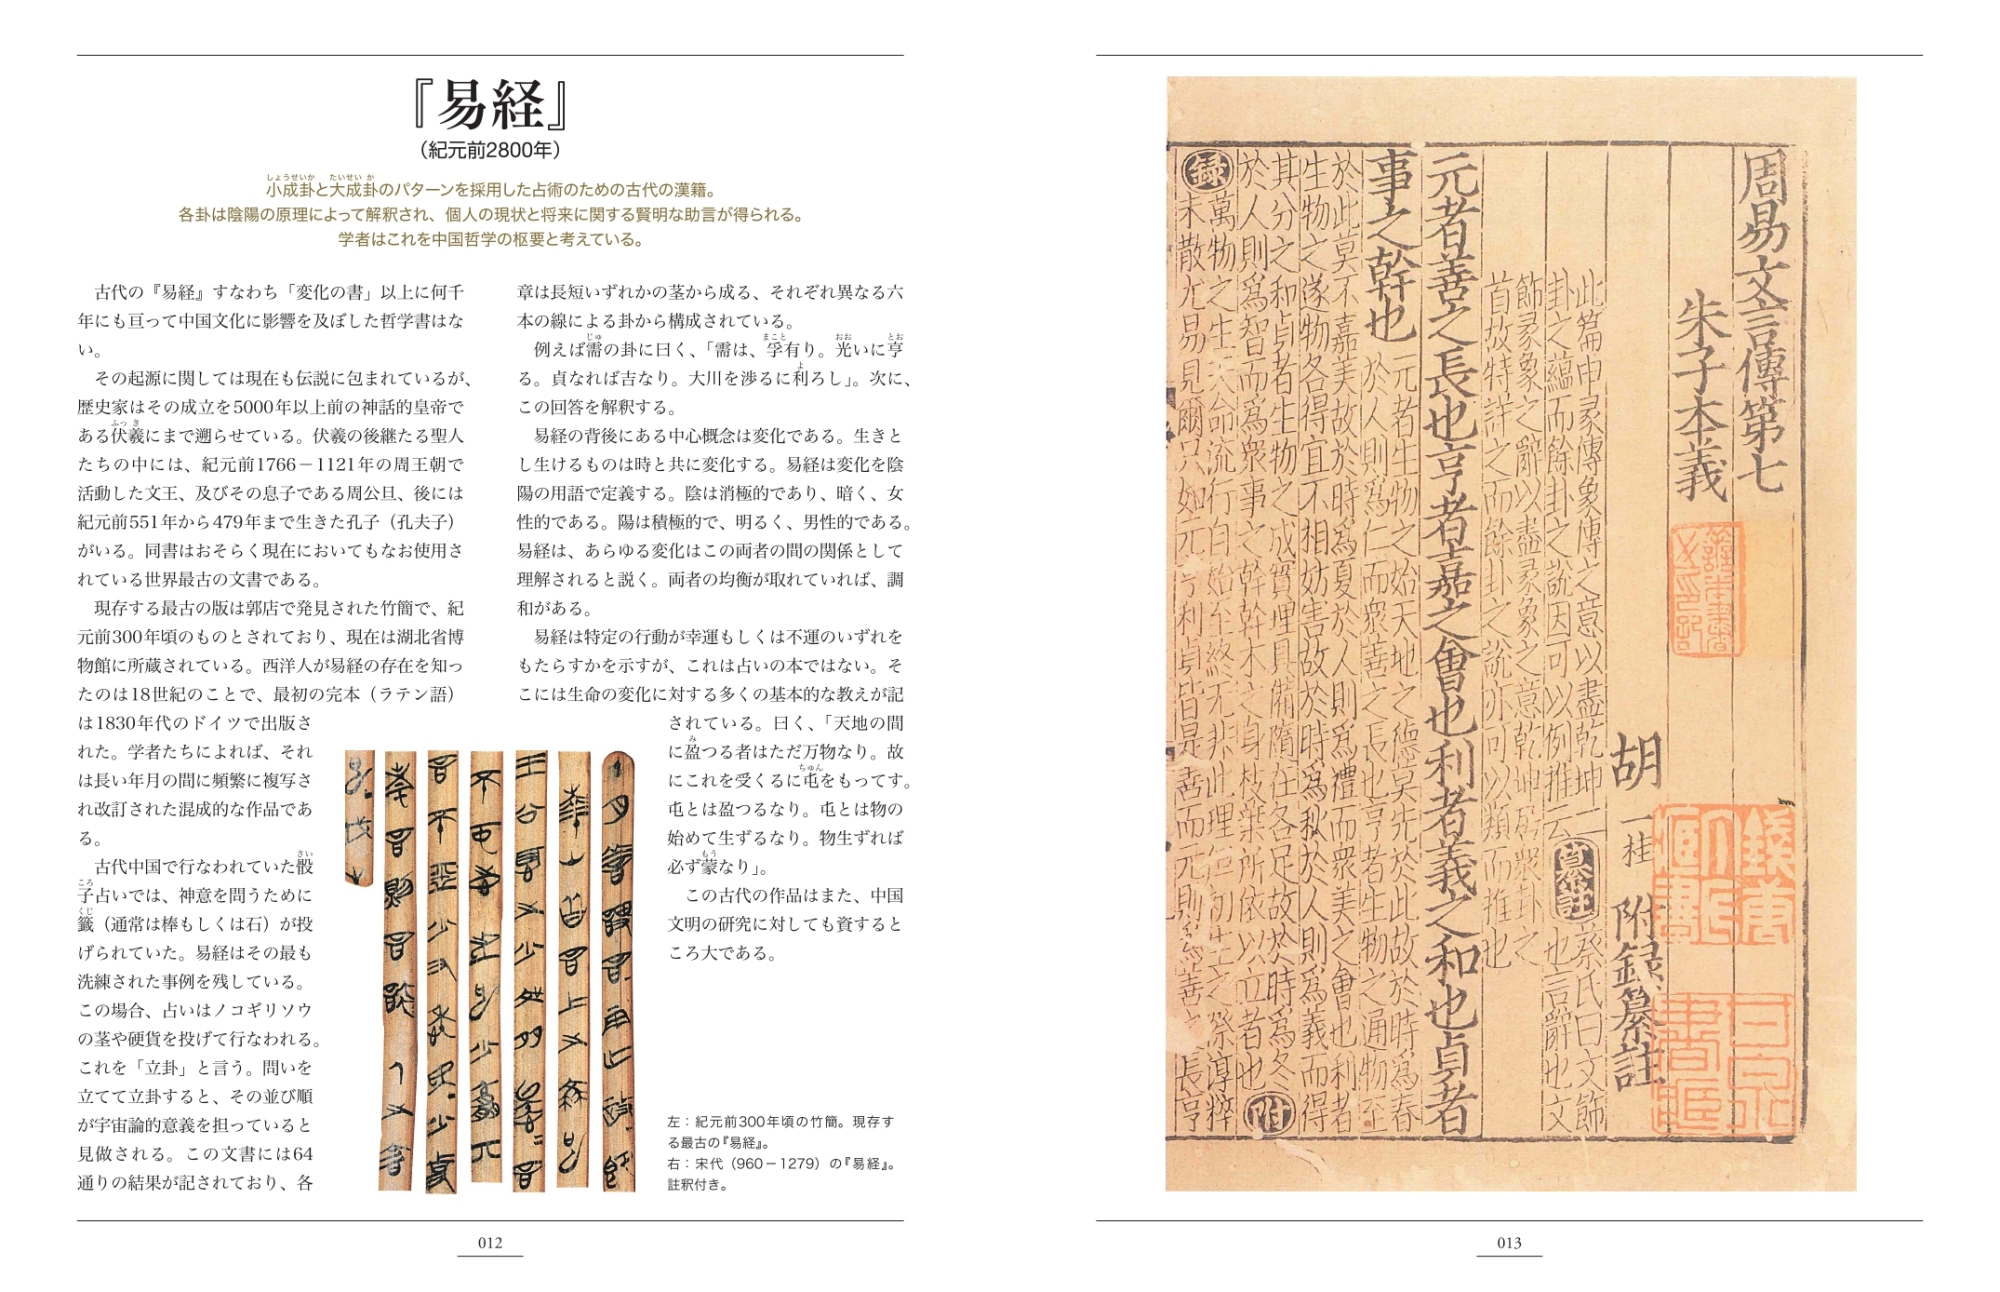 『易経』
（紀元前2800年）
小成卦と大成卦のパターンを採用した占術のための古代の漢籍。
各卦は陰陽の原理によって解釈され、個人の現状と将来に関する賢明な助言が得られる。
学者はこれを中国哲学の枢要と考えている。
古代の『易経』すなわち「変化の書」以上に何千
年にも亘って中国文化に影響を及ぼした哲学書はな
い。
その起源に関しては現在も伝説に包まれているが、
歴史家はその成立を5000年以上前の神話的皇帝で
ある伏羲にまで遡らせている。伏羲の後継たる聖人
たちの中には、紀元前1766－1121年の周王朝で
活動した文王、及びその息子である周公旦、後には
紀元前551年から479年まで生きた孔子（孔夫子）
がいる。同書はおそらく現在においてもなお使用さ
れている世界最古の文書である。
現存する最古の版は郭店で発見された竹簡で、紀
元前300年頃のものとされており、現在は湖北省博
物館に所蔵されている。西洋人が易経の存在を知っ
たのは18世紀のことで、最初の完本（ラテン語）
は1830年代のドイツで出版さ
れた。学者たちによれば、それ
は長い年月の間に頻繁に複写さ
れ改訂された混成的な作品であ
る。
古代中国で行なわれていた骰
子占いでは、神意を問うために
籤（通常は棒もしくは石）が投
げられていた。易経はその最も
洗練された事例を残している。
この場合、占いはノコギリソウ
の茎や硬貨を投げて行なわれる。
これを「立卦」と言う。問いを
立てて立卦すると、その並び順
が宇宙論的意義を担っていると
見做される。この文書には64
通りの結果が記されており、各
章は長短いずれかの茎から成る、それぞれ異なる六
本の線による卦から構成されている。
例えば需の卦に曰く、「需は、孚有り。光いに亨
る。貞なれば吉なり。大川を渉るに利ろし」。次に、
この回答を解釈する。
易経の背後にある中心概念は変化である。生きと
し生けるものは時と共に変化する。易経は変化を陰
陽の用語で定義する。陰は消極的であり、暗く、女
性的である。陽は積極的で、明るく、男性的である。
易経は、あらゆる変化はこの両者の間の関係として
理解されると説く。両者の均衡が取れていれば、調
和がある。
易経は特定の行動が幸運もしくは不運のいずれを
もたらすかを示すが、これは占いの本ではない。そ
こには生命の変化に対する多くの基本的な教えが記
されている。曰く、「天地の間
に盈つる者はただ万物なり。故
にこれを受くるに屯をもってす。
屯とは盈つるなり。屯とは物の
始めて生ずるなり。物生ずれば
必ず蒙なり」。
この古代の作品はまた、中国
文明の研究に対しても資すると
ころ大である。
左：紀元前300年頃の竹簡。現存す
る最古の『易経』。
右：宋代（960－1279）の『易経』。
註釈付き。
012
周易文言傳第七
朱子本義
胡一桂附録纂註
此篇申彖傳象傳之意以盡乾坤二
卦之蘊而餘卦之說因可以例推云
纂註
蔡氏曰文飾
也言辭也文
飾彖象之辭以盡彖象之意乾坤為眾卦之
首故特詳之而餘卦之說亦可以類而推也
元者善之長也亨者嘉之會也利者義之和也貞者
事之幹也
元者生物之始天地之德莫先於此故於時為春
於人則為仁而眾善之長也亨者生物之通物至
於此莫不嘉美故於時為夏於人則為禮而眾美之會也利者
生物之遂物各得宜不相妨害故於時為秋於人則為義而得
其分之和貞者生物之成實理具備隨在各足故於時為冬
於人則為智而為眾事之幹幹木之身枝葉所依以立者也
附
録
萬物之生天命流行自始至終无非此理但初生之際淳粹
未散尤易見爾只如元亨利貞皆是善而元則為善之長亨
013